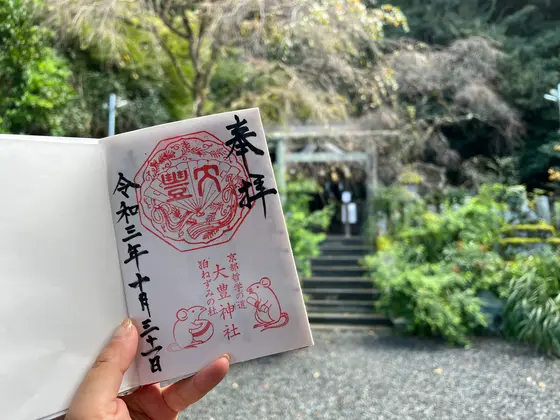 奉拝
大豊
京都哲学の道
大豊神社
狛ねずみの社
令和三年十月三十一日